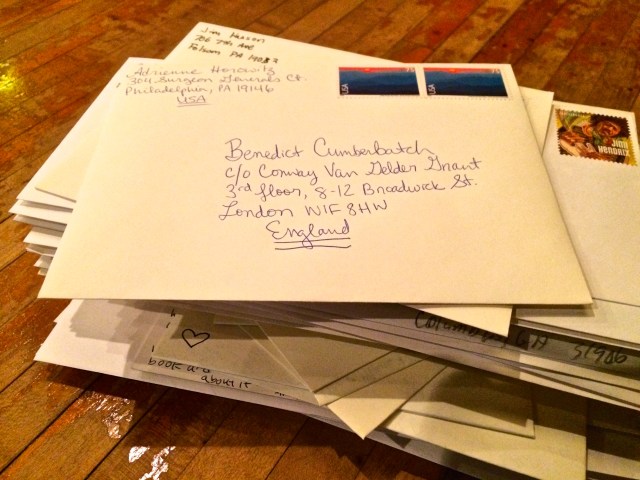 Jim
7th Ave
PA
Adrienne Horowitz
304 Surgeon Generals Ct.
Philadelphia, PA 19146
USA
USA
USA
Benedict Cumberbatch
c/o Conway Van Gelder Grant
3rd floor, 8-12 Broadwick St.
London W1F 8HW
England
JIMI
HENDRIX
GA
book
about it